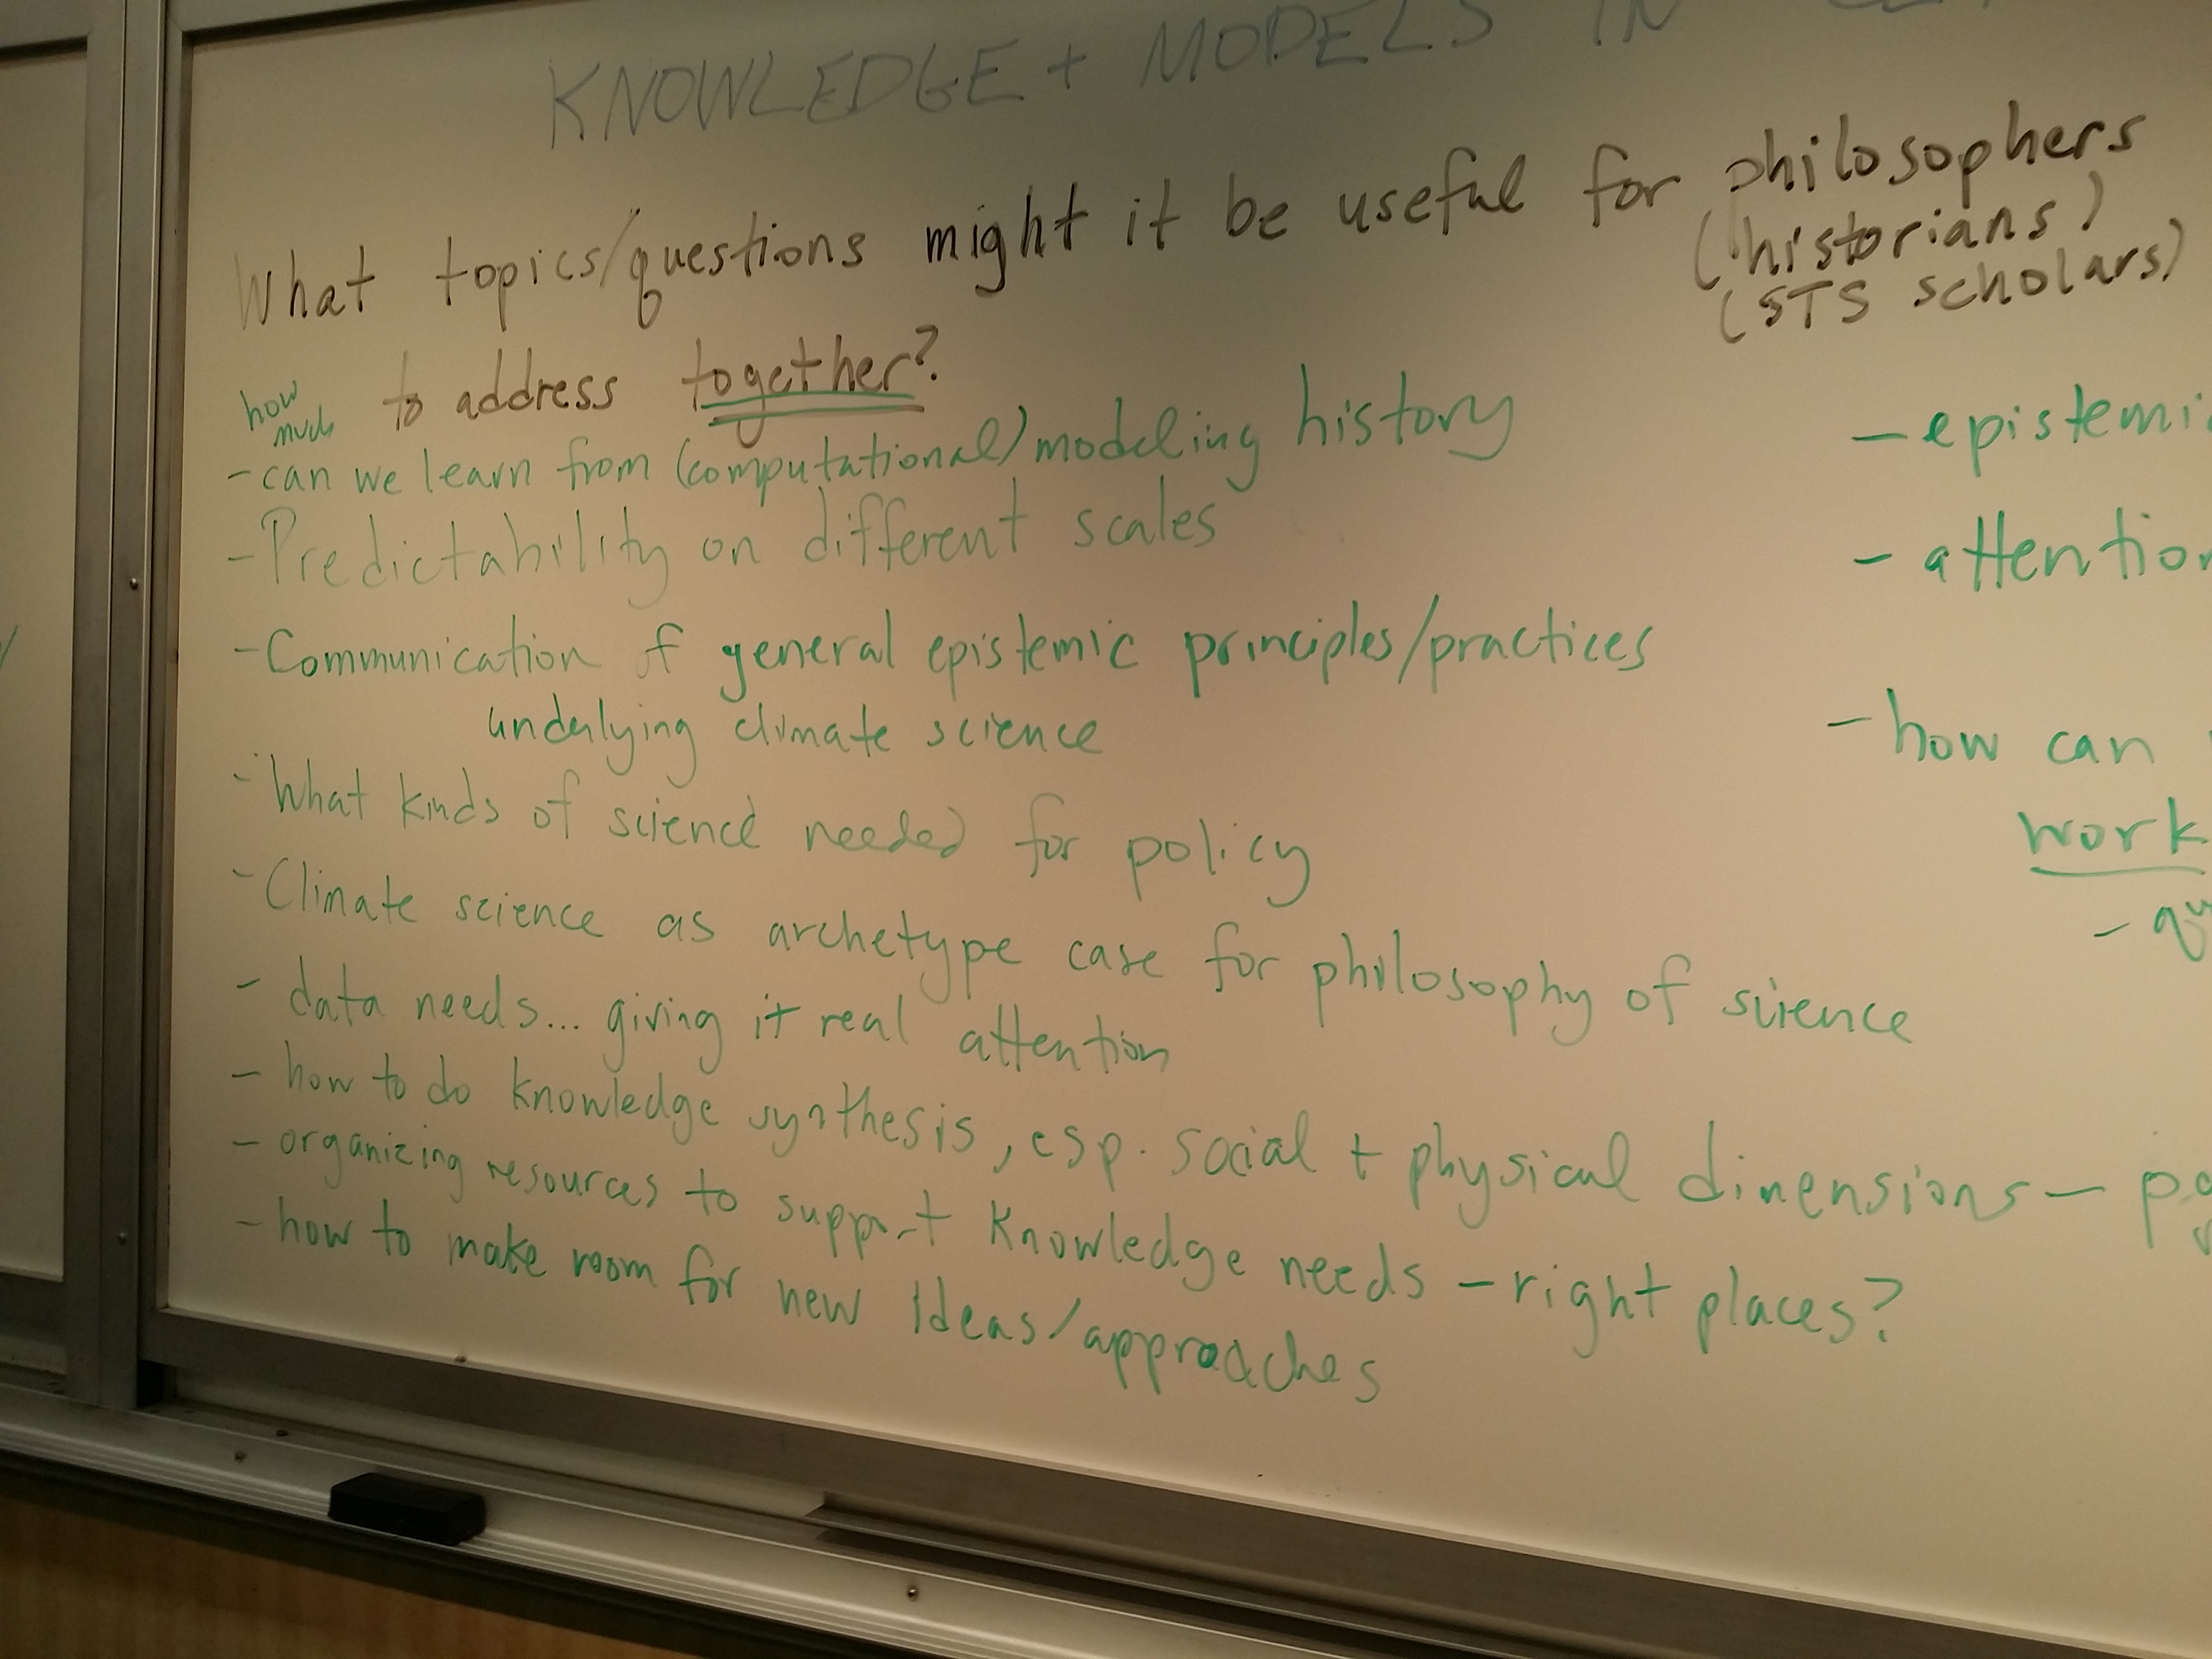 KNOWLEDGE + MODELS IN
What topics/questions might it be useful for philosophers
(historians)
(STS scholars)
to address together?
how
much
- can we learn from (computational) modeling history
- Predictability on different scales
- Communication of general epistemic principles/practices
underlying climate science
- What kinds of science needed for policy
- Climate science as archetype case for philosophy of science
- data needs... giving it real attention
- how to do knowledge synthesis, esp. social + physical dimensions —
- organizing resources to support knowledge needs - right places?
- how to make room for new ideas/approaches
- epistemi
- attention
- how can
work